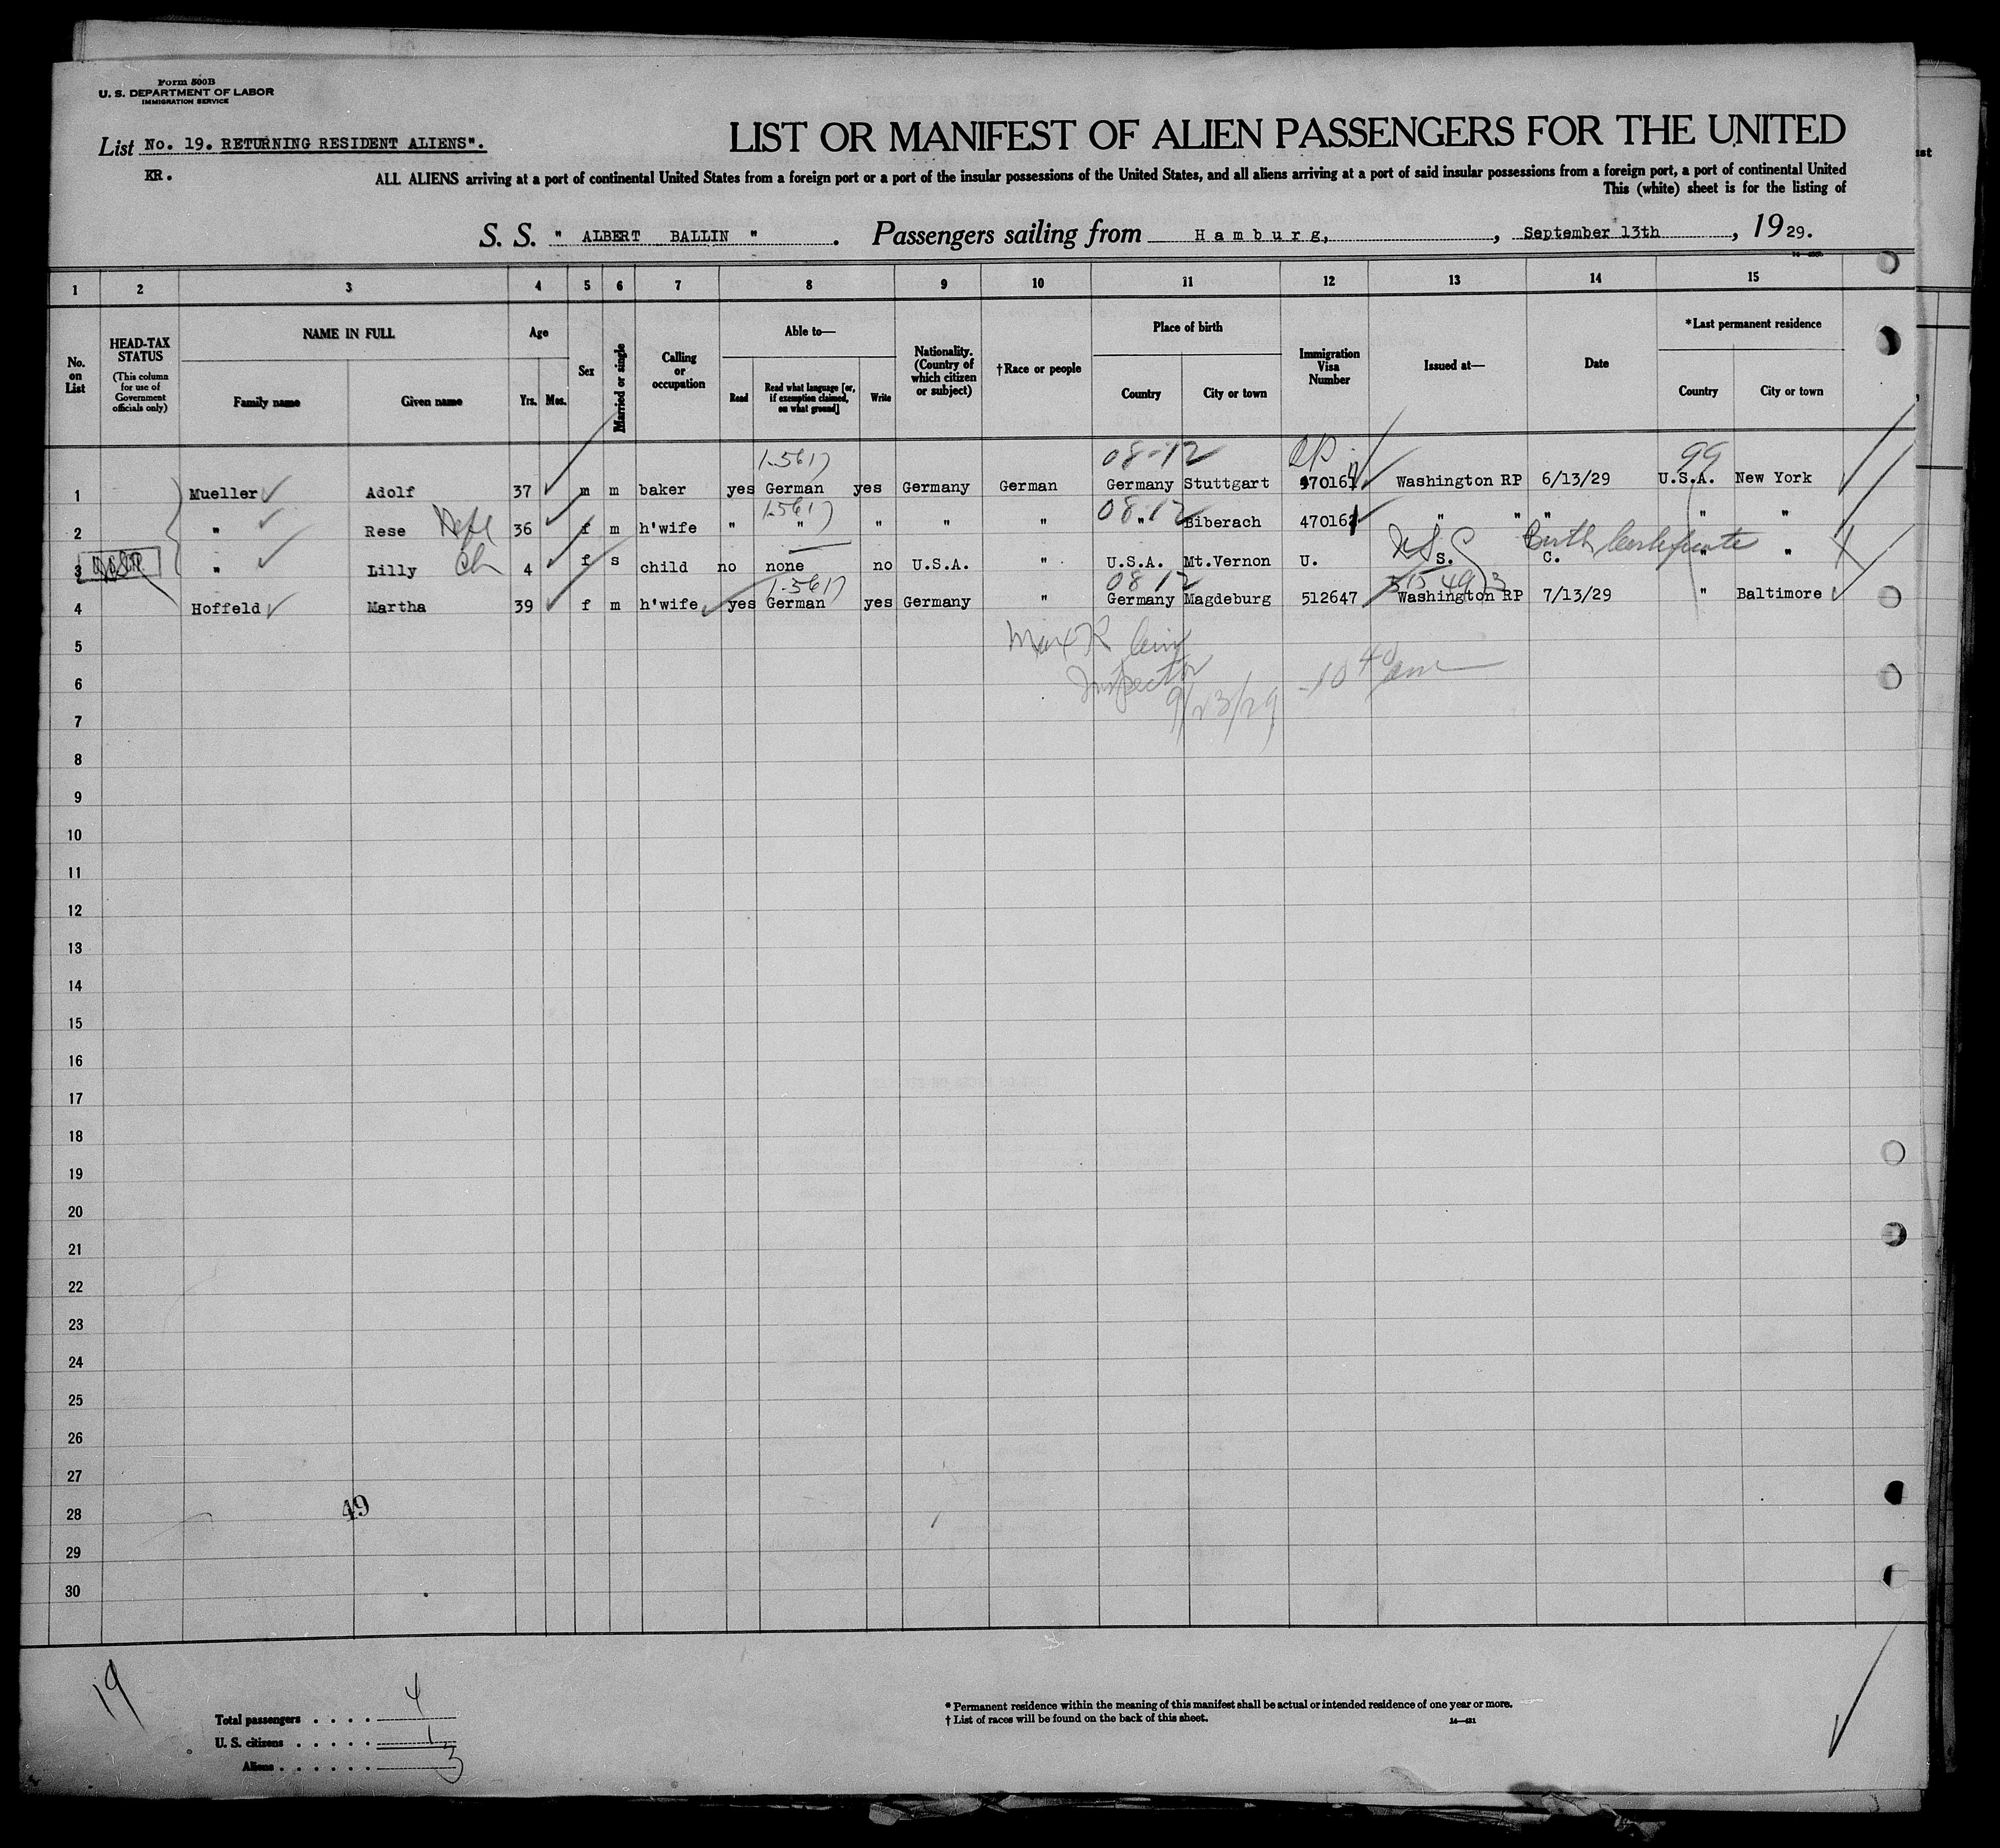 Form 500B
U. S. DEPARTMENT OF LABOR
IMMIGRATION SERVICE
List No. 19. RETURNING RESIDENT ALIENS".
KR.
LIST OR MANIFEST OF ALIEN PASSENGERS FOR THE UNITED
ALL ALIENS arriving at a port of continental United States from a foreign port or a port of the insular possessions of the United States, and all aliens arriving at a port of said insular possessions from a foreign port, a port of continental United
This (white) sheet is for the listing of
S. S. " ALBERT BALLIN " . Passengers sailing from Hamburg, , September 13th , 1929.
1 2 3 4 5 6 7 8 9 10 11 12 13 14 15
No. on List
HEAD-TAX STATUS
(This column for use of Government officials only)
NAME IN FULL
Family name Given name
Age
Yrs. Mos.
Sex
Married or single
Calling or occupation
Able to—
Read Read what language [or, if exemption claimed, on what ground] Write
Nationality. (Country of which citizen or subject)
†Race or people
Place of birth
Country City or town
Immigration Visa Number
Issued at—
Date
*Last permanent residence
Country City or town
08-12 99
1 Mueller Adolf 37 m m baker yes German yes Germany German Germany Stuttgart Washington RP 6/13/29 U.S.A. New York
08-12
2 " Rese 36 f m h'wife " " " " " " Biberach " " " " "
Birth Certificate
3 " Lilly Ch 4 f s child no none no U.S.A. " U.S.A. Mt.Vernon U. S. C. " "
08 12
4 Hoffeld Martha 39 f m h'wife yes German yes Germany " Germany Magdeburg 512647 Washington RP 7/13/29 " Baltimore
5
Inspector
6
9/23/29 -10 40 am
7
8
9
10
11
12
13
14
15
16
17
18
19
20
21
22
23
24
25
26
27
28 49
29
30
19
Total passengers . . . . 4
U. S. citizens . . . . . 1
Aliens . . . . . . 3
* Permanent residence within the meaning of this manifest shall be actual or intended residence of one year or more.
† List of races will be found on the back of this sheet.